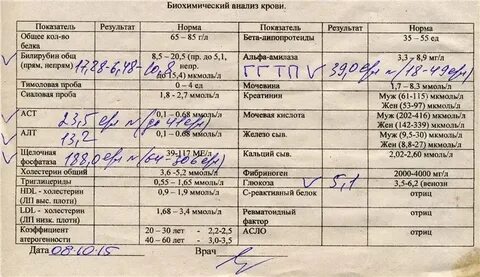 Биохимический анализ крови.
Показатель Результат Норма Показатель Результат Норма
Общее кол-во белка 65 – 85 г/л Бета-липопротеиды 35 – 55 ед
Билирубин общ (прям, непрям) 17,28-6,48-10,8 8,5 – 20,5 (пр. до 5,1, непр. до 15,4) ммоль/л Альфа-амилаза 3,3 – 8,9 мг/л
ГГТП 39,0 ед N (18-49 ед)
Тимоловая проба 0 – 4 ед Мочевина 1,7 – 8.3 ммоль/л
Сиаловая проба 1,8 - 2,7 ммоль/л Креатинин Муж (61-115) мкмоль/л
Жен (53-97) мкмоль/л
АСТ 23,5 ед N (до 41 ед) 0,1 – 0.68 ммоль/л Мочевая кислота Муж (202-416) мкмоль/л
Жен (142-339) мкмоль/л
АЛТ 13,2 0,1 – 0.68 ммоль/л Железо сыв. Муж (9,5-30) мкмоль/л
Жен (8,8-27) мкмоль/л
Щелочная фосфатаза 188,0 ед N (64-306 ед) 39-117 МЕ/л Кальций сыв. 2,02-2,60 ммоль/л
Холестерин общий 3,6 -5,2 ммоль/л Фибриноген 2000-4000 мг/л
Триглицериды 0,55 – 1,65 ммоль/л Глюкоза 5,1 3,5-6,2 (венозн
HDL - холестерин (ЛП выс. плотн) 0,9 – 1,9 ммоль/л С-реактивный белок отриц
LDL - холестерин (ЛП низк. плотн) 1,68 – 3,4 ммоль/л Ревматоидный фактор отриц
Коэффициент атерогенности 20 – 30 лет - 2,2-2,5 АСЛО отриц
40 – 60 лет - 3,0-3,5
Дата 08.10.15 Врач